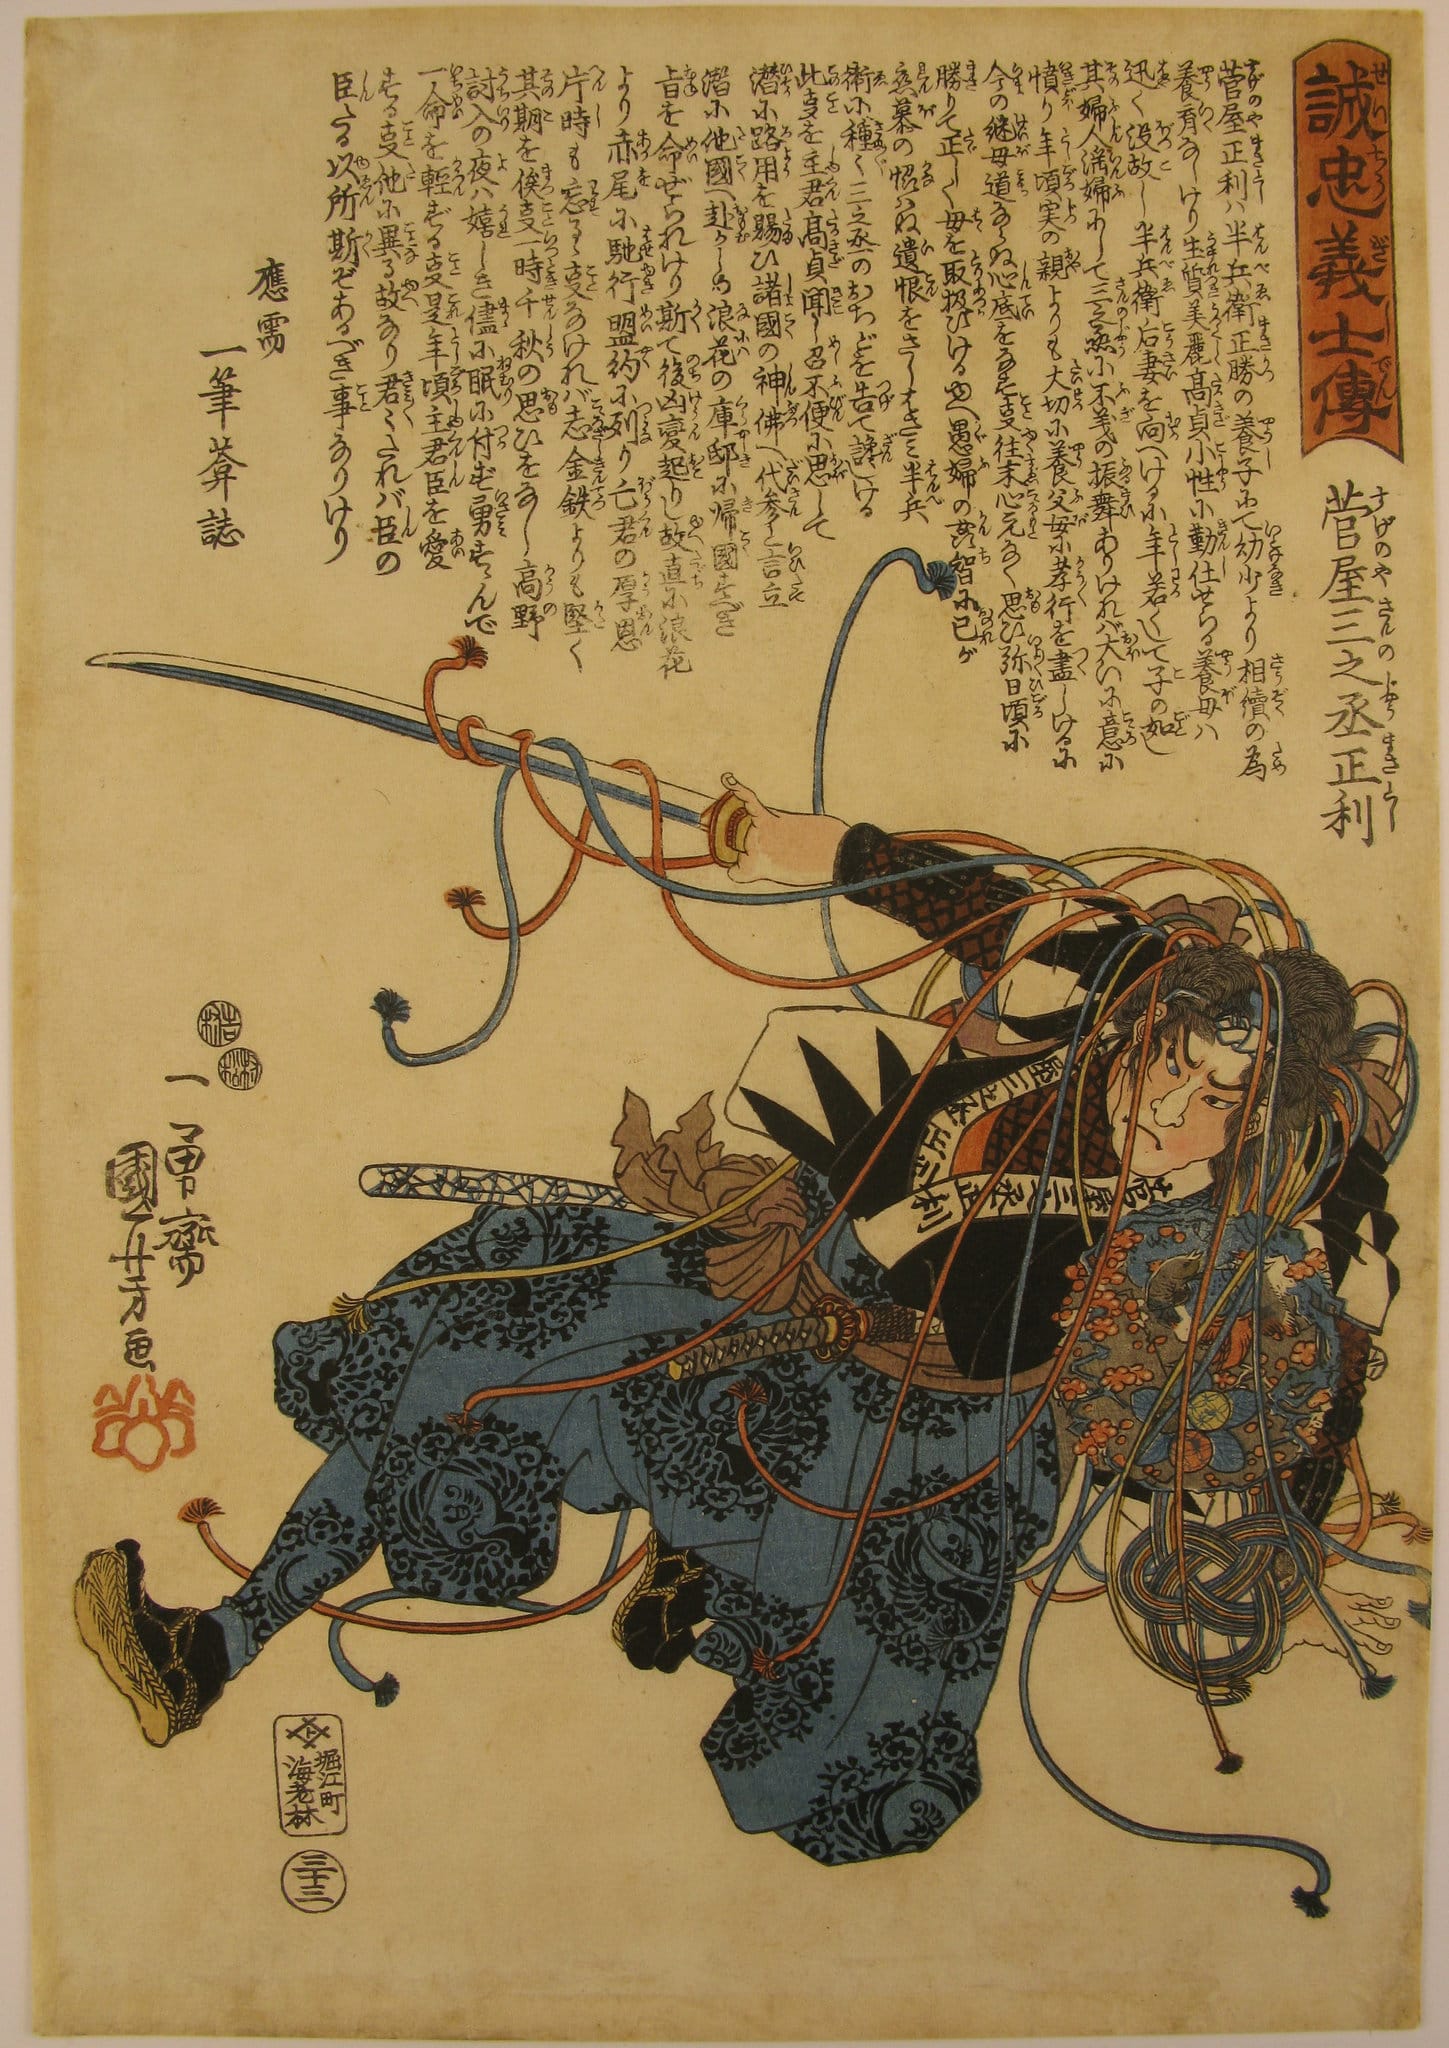 誠忠義士傳
せいちうぎしでん
菅屋三之丞正利
すげのやさんのじようまさとし
菅屋正利ハ半兵衛正勝の養子にて幼少より相續の為
養育なしけり生質美麗高貞小性に勤仕せらる養母ハ
迅く没故し半兵衛后妻を向へける小年若くして子の如し
其婦人淫婦にして三之丞に不義の振舞ありけれバ大いに意に
憤り年頃実の親よりも大切に養父母に孝行を盡しけるに
今の継母道ならぬ心底をなす支往末心元なく思ひ弥日頃に
勝りて正しく母を取扱ひけるゆへ愚婦の莟智に己が
恋慕の惱ハぬ遺恨をさしはさミ半兵
衛に種々三之丞のおちどを告て讒しける
此支を主君高貞聞し召不便に思して
潜に路用を賜ひ諸國の神佛へ代参と言立
潜に他國へ赴かしめ浪花の庫邸に帰國すべき
旨を命ぜられけり斯て後凶変起りし故直に浪花
より赤尾に馳行盟約に列り亡君の厚恩
片時も忘るゝ支なけれバ志金鉄よりも堅く
其期を俟支一時千秋の思ひをなし高野
討入の夜ハ嬉しき儘に眠に付ず勇すゝんで
一命を輕ずる支是年頃主君臣を愛
する支他に異る故なり君々たれバ臣の
臣たる以所斯ぞあるべき事なりけり
應需
一筆葊誌
菅屋三之丞正利
一勇齋
國芳画
堀江町
海老林
三十三